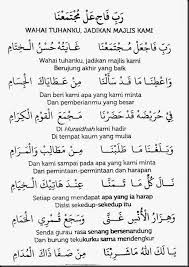 رَبِّ فَاجْعَلْ مُجْتَمَعْنَا
WAHAI TUHANKU, JADIKAN MAJLIS KAMI
رَبِّ فَاجْعَلْ مُجْتَمَعْنَا غَايَتُهْ حُسْنُ الْخِتَامِ
Wahai tuhanku, jadikan majlis kami
Berujung akhir yang baik
وَاعْطِنَا مَا قَدْ سَأَلْنَا مِنْ عَطَايَاكَ الْجِسَامِ
Dan beri kami apa yang kami minta
Dan pemberianmu yang besar
فِي حُرَيْضَة قَدْ حَضَرْنَا مَجْمَعَ الْقَوْمِ الْكِرَامِ
Di Huraidhah kami hadir
Di tempat kaum yang mulia
وَبَلَغْنَا مَا طَلَبْنَا مِنْ مَطَالِبْ وَالْمَرَامِ
Dan kami sampai pada apa yang kami minta
Dari permintaan dan harapan
نَالَ كُلٌّ مَا تَمَنَّى عِنْدَ هَاتِيكَ الْخِيَامِ
Setiap orang mendapat apa yang ia harap
Disisi sekedup-sekedup itu
وَهَزَارُ الْأُنْسِ غَنَّى وَسَجَعْ قُمْرِي الْحَمَامِ
Senda gurau rasa senang bersenandung
Dan burung tekukurku sama mendengkur